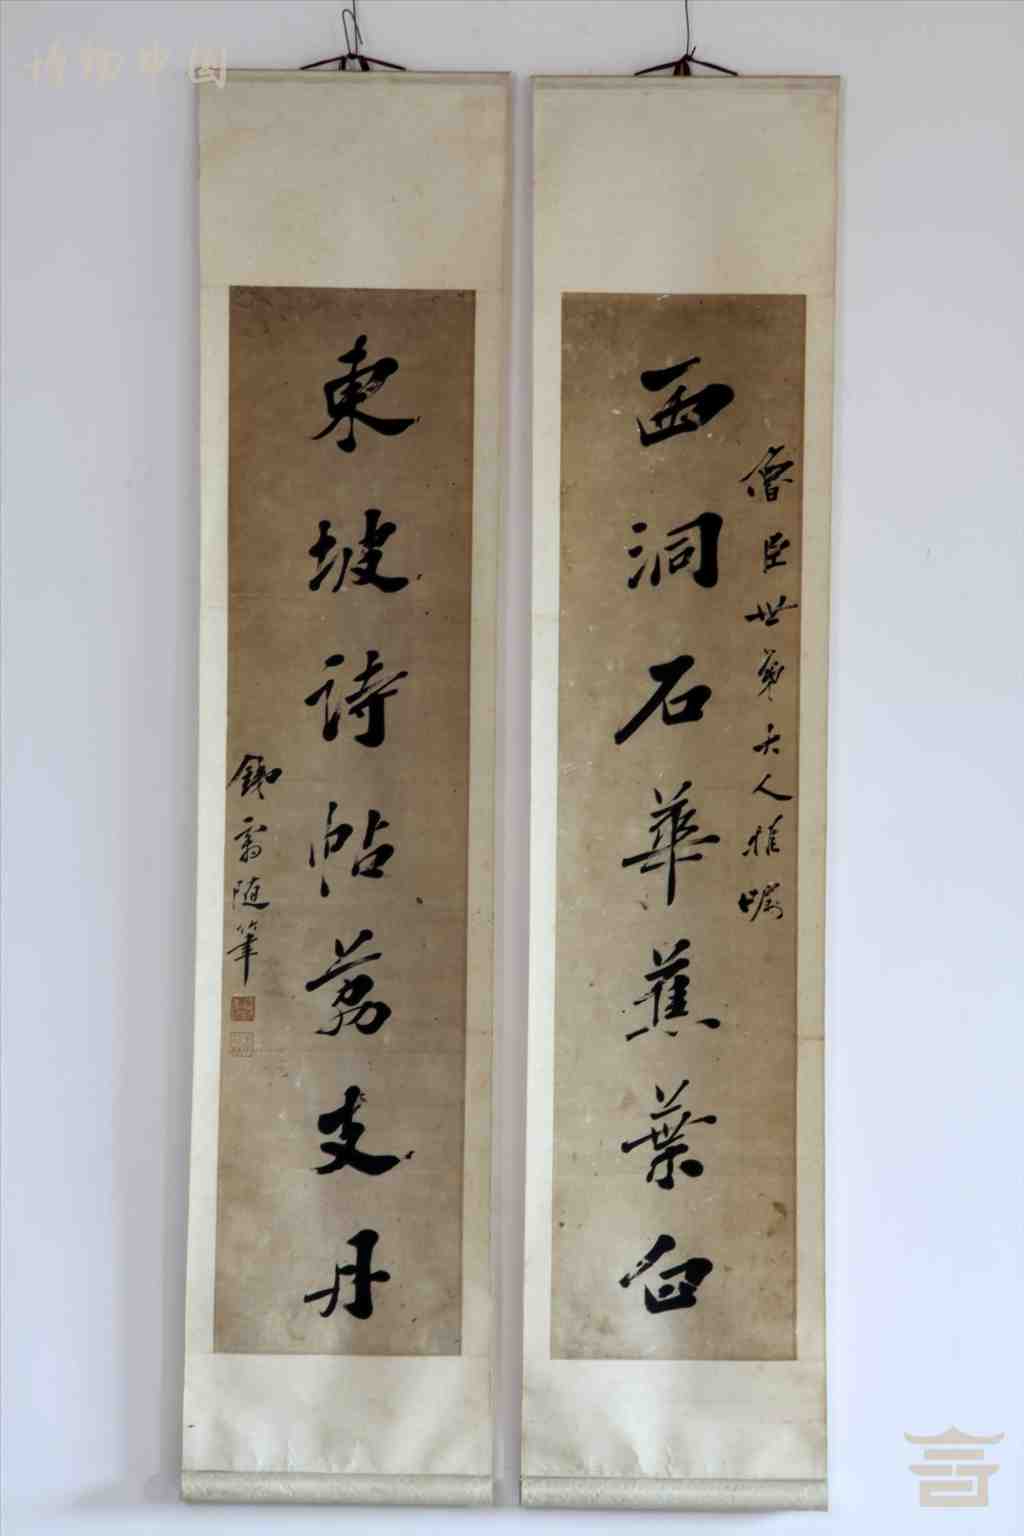 西洞石華蕉葉白
魯臣世弟大人雅囑
東坡詩帖荔支丹
鐵翁随筆
博物中国